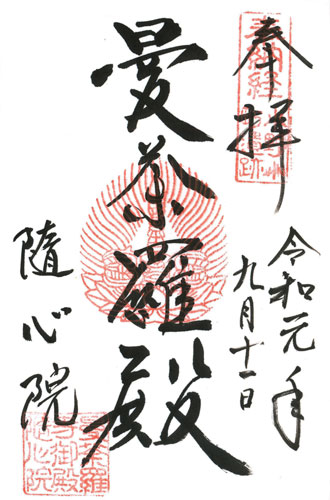 奉拝
令和元年
九月十一日
曼荼羅殿
隨心院